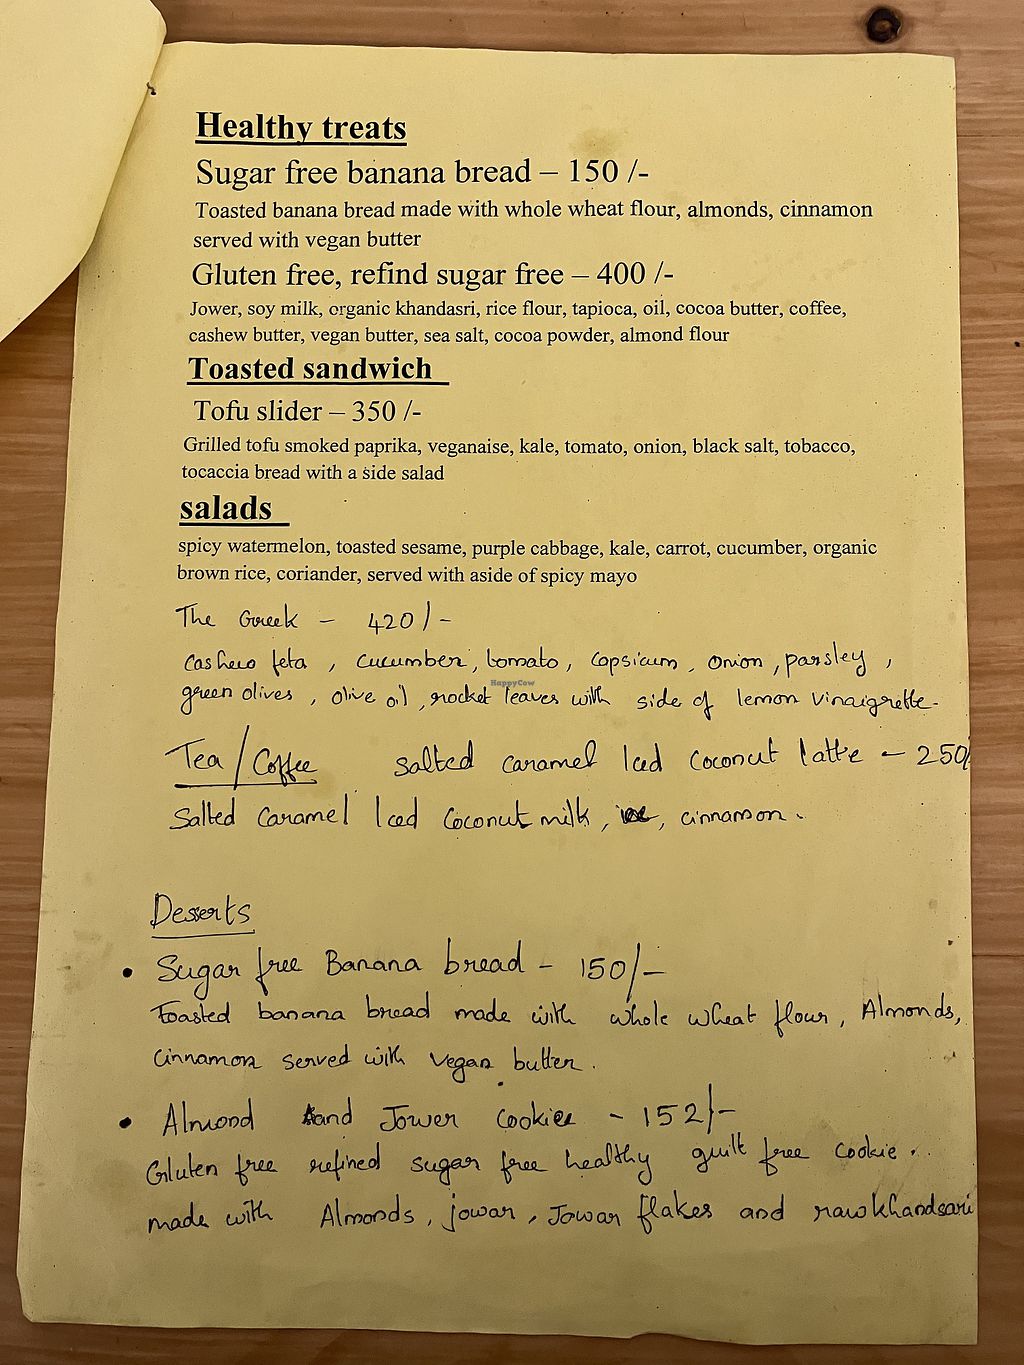 Healthy treats
Sugar free banana bread – 150 /-
Toasted banana bread made with whole wheat flour, almonds, cinnamon
served with vegan butter
Gluten free, refind sugar free – 400 /-
Jower, soy milk, organic khandasri, rice flour, tapioca, oil, cocoa butter, coffee,
cashew butter, vegan butter, sea salt, cocoa powder, almond flour
Toasted sandwich
Tofu slider – 350 /-
Grilled tofu smoked paprika, veganaise, kale, tomato, onion, black salt, tobacco,
tocaccia bread with a side salad
salads
spicy watermelon, toasted sesame, purple cabbage, kale, carrot, cucumber, organic
brown rice, coriander, served with aside of spicy mayo
The Greek – 420/-
cashew feta, cucumber, tomato, capsicum, onion, parsley,
green olives, olive oil, rocket leaves with side of lemon vinaigrette.
HappyCow
Tea/Coffee salted caramel Iced coconut latte – 250/
Salted caramel Iced coconut milk, , cinnamon.
Desserts
• Sugar free Banana bread – 150/-
Toasted banana bread made with whole wheat flour, Almonds,
cinnamon served with vegan butter.
• Almond and Jower cookie – 152/-
Gluten free refined sugar free healthy guilt free cookie..
made with Almonds, jowar, Jowar flakes and raw khandsari